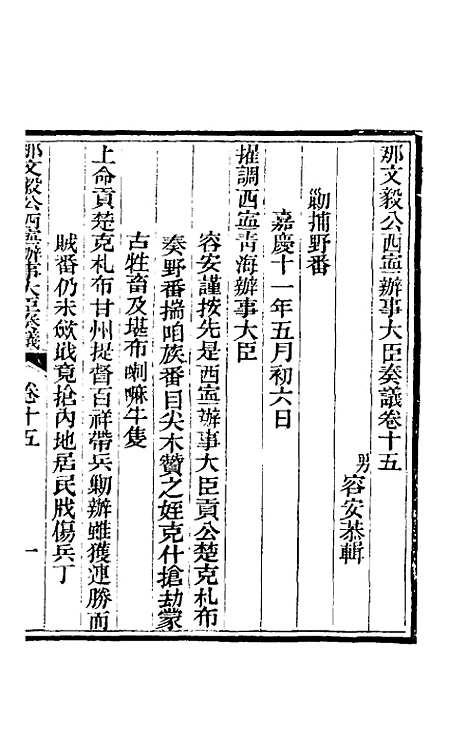 那文毅公西寧辦事大臣奏議卷十五
男容安恭輯
勦捕野番
嘉慶十一年五月初六日
擢調西寧青海辦事大臣
容安謹按先是西寧辦事大臣貢公楚克札布
奏野番揣咱族番目尖木贊之姪克什搶劫蒙
古牲畜及堪布喇嘛牛隻
上命貢楚克札布甘州提督百祥帶兵勦辦雖獲連勝而
賊番仍未歛戢竟搶內地居民戕傷兵丁
那文毅公西寧辦事大臣奏議
卷十五
一